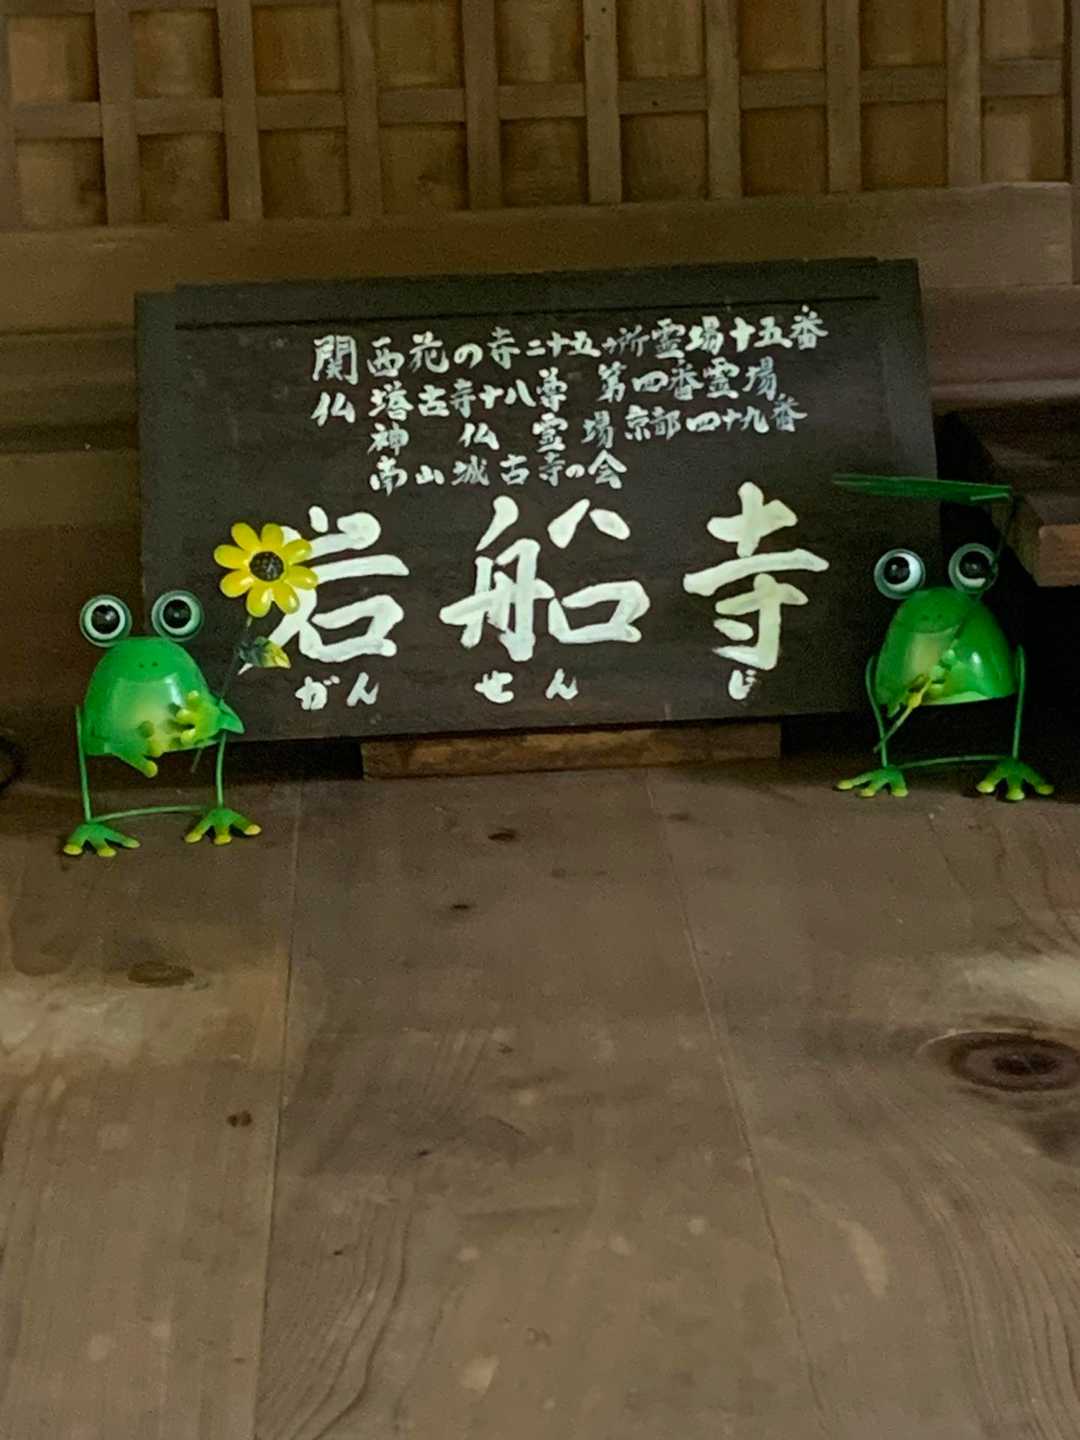 関西花の寺二十五ヶ所霊場十五番
仏塔古寺十八尊 第四番霊場
神仏霊場京都四十九番
南山城古寺の会
岩船寺
がんせんじ